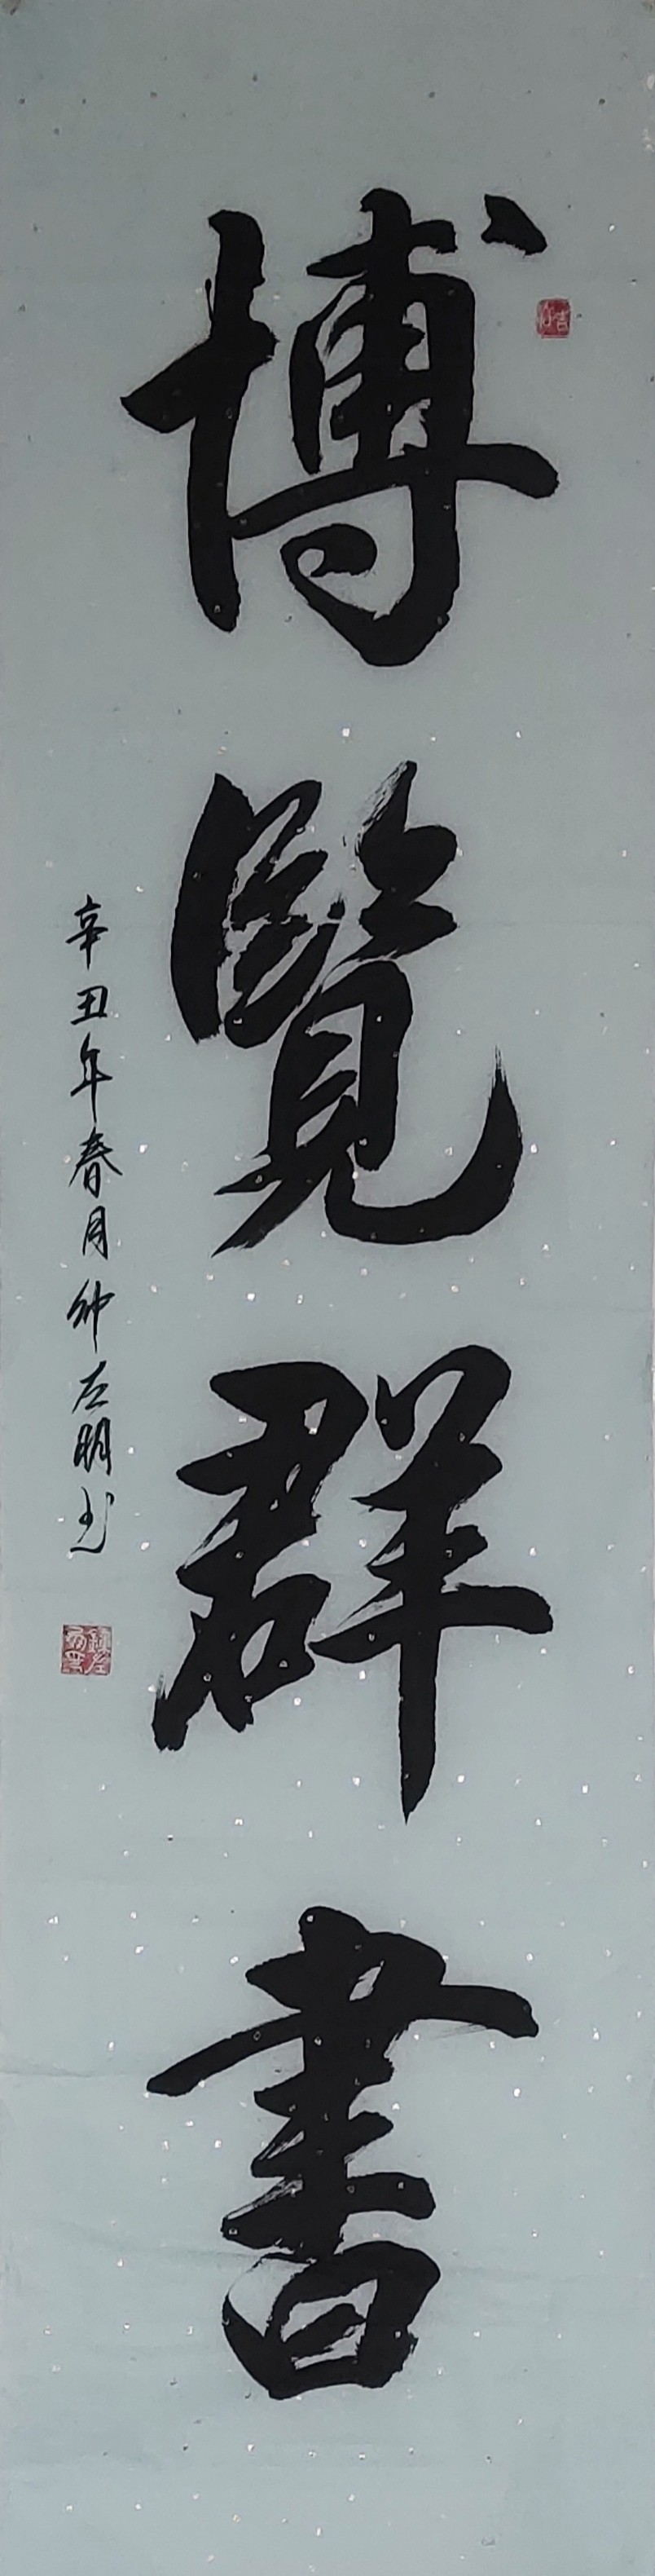 博覽群書
辛丑年春月钟左明书